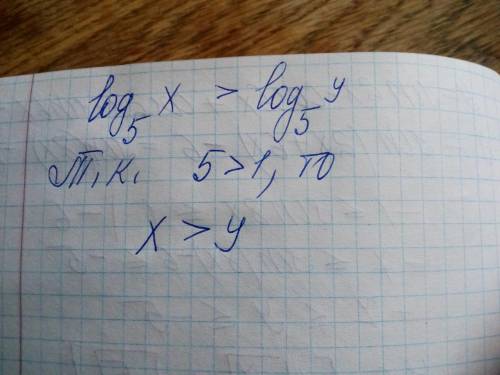 log₅ x > log₅ y
Т. к. 5 > 1, то
x > y